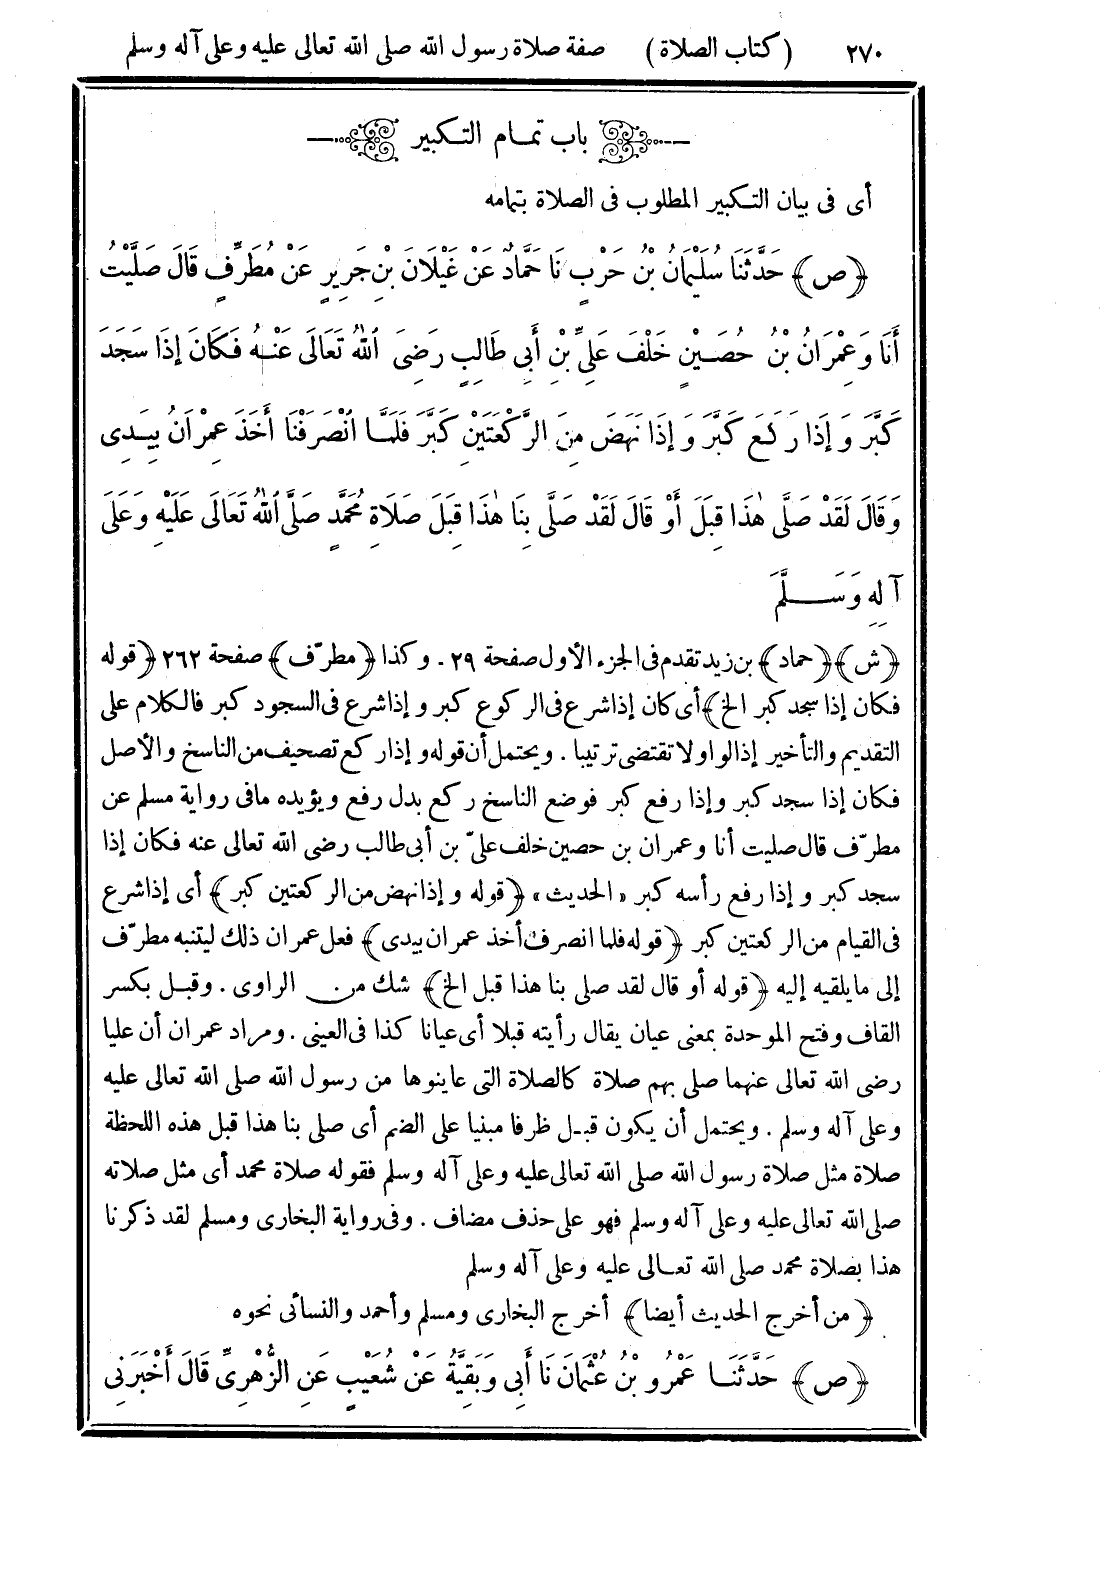 ٢٧٠ (كتاب الصلاة) صفة صلاة رسول الله صلى الله تعالى عليه وعلى آله وسلم
باب تمام التكبير
أى فى بيان التكبير المطلوب فى الصلاة بتمامه
﴿ص﴾ حَدَّثَنَا سُلَيْمَانُ بْنُ حَرْبٍ نَا حَمَّادٌ عَنْ غَيْلَانَ بْنِ جَرِيرٍ عَنْ مُطَرِّفٍ قَالَ صَلَّيْتُ
أَنَا وَعِمْرَانُ بْنُ حُصَيْنٍ خَلْفَ عَلِىِّ بْنِ أَبِى طَالِبٍ رَضِىَ اللهُ تَعَالَى عَنْهُ فَكَانَ إِذَا سَجَدَ
كَبَّرَ وَإِذَا رَكَعَ كَبَّرَ وَإِذَا نَهَضَ مِنَ الرَّكْعَتَيْنِ كَبَّرَ فَلَمَّا انْصَرَفْنَا أَخَذَ عِمْرَانُ بِيَدِى
وَقَالَ لَقَدْ صَلَّى هٰذَا قِبَلَ أَوْ قَالَ لَقَدْ صَلَّى بِنَا هٰذَا قِبَلَ صَلَاةِ مُحَمَّدٍ صَلَّى اللهُ تَعَالَى عَلَيْهِ وَعَلَى
آلِهِ وَسَلَّمَ
﴿ش﴾ ﴿حماد﴾ بن زيد تقدم فى الجزء الأول صفحة ٢٩. وكذا ﴿مطرّف﴾ صفحة ٢٦٢ ﴿قوله
فكان إذا سجد كبر الخ﴾ أى كان إذا شرع فى الركوع كبر وإذا شرع فى السجود كبر فالكلام على
التقديم والتأخير إذ الواو لا تقتضى ترتيبا. ويحتمل أن قوله وإذا ركع تصحيف من الناسخ والأصل
فكان إذا سجد كبر وإذا رفع كبر فوضع الناسخ ركع بدل رفع ويؤيده ما فى رواية مسلم عن
مطرّف قال صليت أنا وعمران بن حصين خلف علىّ بن أبى طالب رضى الله تعالى عنه فكان إذا
سجد كبر وإذا رفع رأسه كبر «الحديث» ﴿قوله وإذا نهض من الركعتين كبر﴾ أى إذا شرع
فى القيام من الركعتين كبر ﴿قوله فلما انصرفنا أخذ عمران بيدى﴾ فعل عمران ذلك ليتنبه مطرّف
إلى ما يلقيه إليه ﴿قوله أو قال لقد صلى بنا هذا قبل الخ﴾ شك من الراوى. وقبل بكسر
القاف وفتح الموحدة بمعنى عيان يقال رأيته قبلا أى عيانا كذا فى العينى. ومراد عمران أن عليا
رضى الله تعالى عنهما صلى بهم صلاة كالصلاة التى عاينوها من رسول الله صلى الله تعالى عليه
وعلى آله وسلم. ويحتمل أن يكون قبل ظرفا مبنيا على الضم أى صلى بنا هذا قبل هذه اللحظة
صلاة مثل صلاة رسول الله صلى الله تعالى عليه وعلى آله وسلم فقوله صلاة محمد أى مثل صلاته
صلى الله تعالى عليه وعلى آله وسلم فهو على حذف مضاف. وفى رواية البخارى ومسلم لقد ذكرنا
هذا بصلاة محمد صلى الله تعالى عليه وعلى آله وسلم
﴿من أخرج الحديث أيضا﴾ أخرج البخارى ومسلم وأحمد والنسائى نحوه
﴿ص﴾ حَدَّثَنَا عَمْرُو بْنُ عُثْمَانَ نَا أَبِى وَبَقِيَّةُ عَنْ شُعَيْبٍ عَنِ الزُّهْرِىِّ قَالَ أَخْبَرَنِى